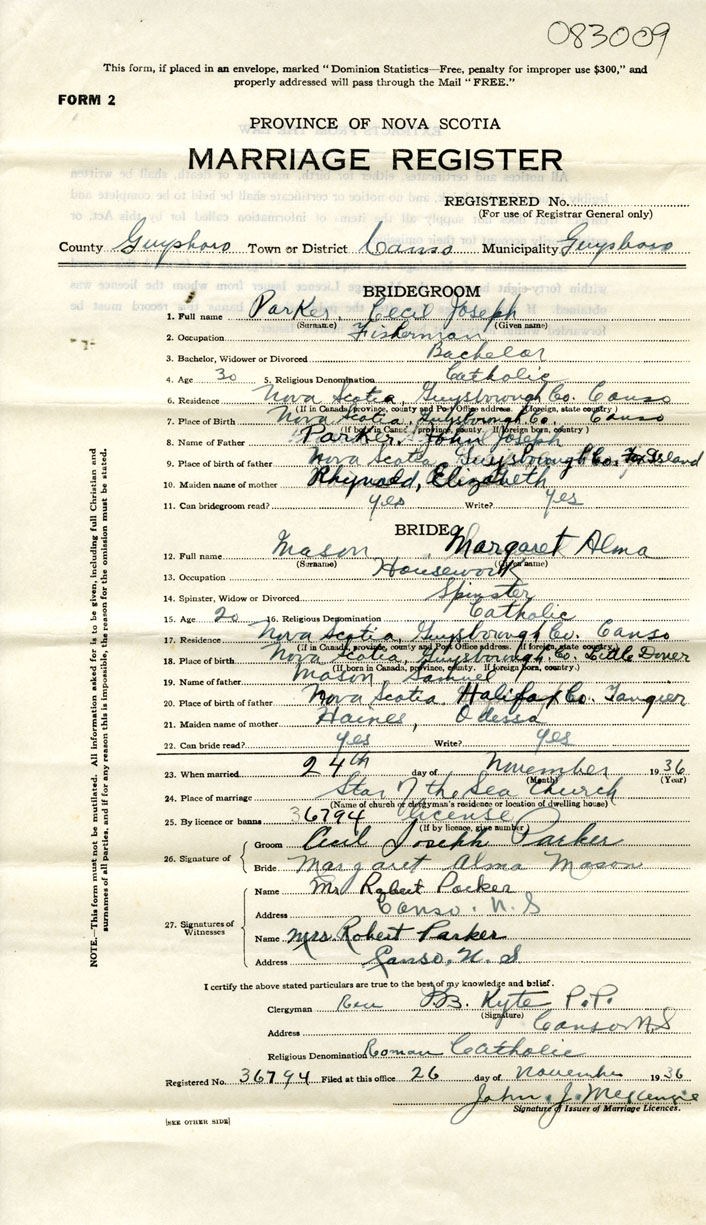 083009
This form, if placed in an envelope, marked "Dominion Statistics—Free, penalty for improper use $300," and
properly addressed will pass through the Mail "FREE."
FORM 2
PROVINCE OF NOVA SCOTIA
MARRIAGE REGISTER
REGISTERED No.
(For use of Registrar General only)
County Guysboro Town or District Canso Municipality Guysboro
BRIDEGROOM
1. Full name Parker, Cecil Joseph
(Surname) (Given name)
2. Occupation Fisherman
3. Bachelor, Widower or Divorced Bachelor
4. Age 30 5. Religious Denomination Catholic
6. Residence Nova Scotia, Guysborough Co. Canso
(If in Canada, province, county and Post Office address. If foreign, state country)
7. Place of Birth Nova Scotia, Guysborough Co. Canso
(If born in Canada, province, county. If foreign born, country)
8. Name of Father Parker, John Joseph
9. Place of birth of father Nova Scotia Guysborough Co. Fox Island
10. Maiden name of mother Rhynold, Elizabeth
11. Can bridegroom read? yes Write? yes
BRIDE
12. Full name Mason, Margaret Alma
(Surname) (Given name)
13. Occupation Housework
14. Spinster, Widow or Divorced Spinster
15. Age 20 16. Religious Denomination Catholic
17. Residence Nova Scotia, Guysborough Co. Canso
(If in Canada, province, county and Post Office address. If foreign, state country)
18. Place of birth Nova Scotia, Guysborough Co. Little Dover
(If born in Canada, province, county. If foreign born, country.)
19. Name of father Mason Samuel
20. Place of birth of father Nova Scotia Halifax Co. Tangier
21. Maiden name of mother Haines, Odessa
22. Can bride read? yes Write? yes
23. When married 24th day of November 1936
(Month) (Year)
24. Place of marriage Star of the Sea Church
(Name of church or clergyman's residence or location of dwelling house)
25. By licence or banns 36794 license
(If by licence, give number)
26. Signature of
Groom Cecil Joseph Parker
Bride Margaret Alma Mason
27. Signatures of Witnesses
Name Mr Robert Parker
Address Canso. N.S
Name Mrs. Robert Parker
Address Canso. N. S.
I certify the above stated particulars are true to the best of my knowledge and belief.
Clergyman Rev Kyte P.P.
(Signature)
Address Canso N.S
Religious Denomination Roman Catholic
Registered No. 36794 Filed at this office 26 day of November 1936
John. J. McKenzie
Signature of Issuer of Marriage Licences.
[SEE OTHER SIDE]
NOTE.—This form must not be mutilated. All information asked for is to be given, including full Christian and
surnames of all parties, and if for any reason this is impossible, the reason for the omission must be stated.